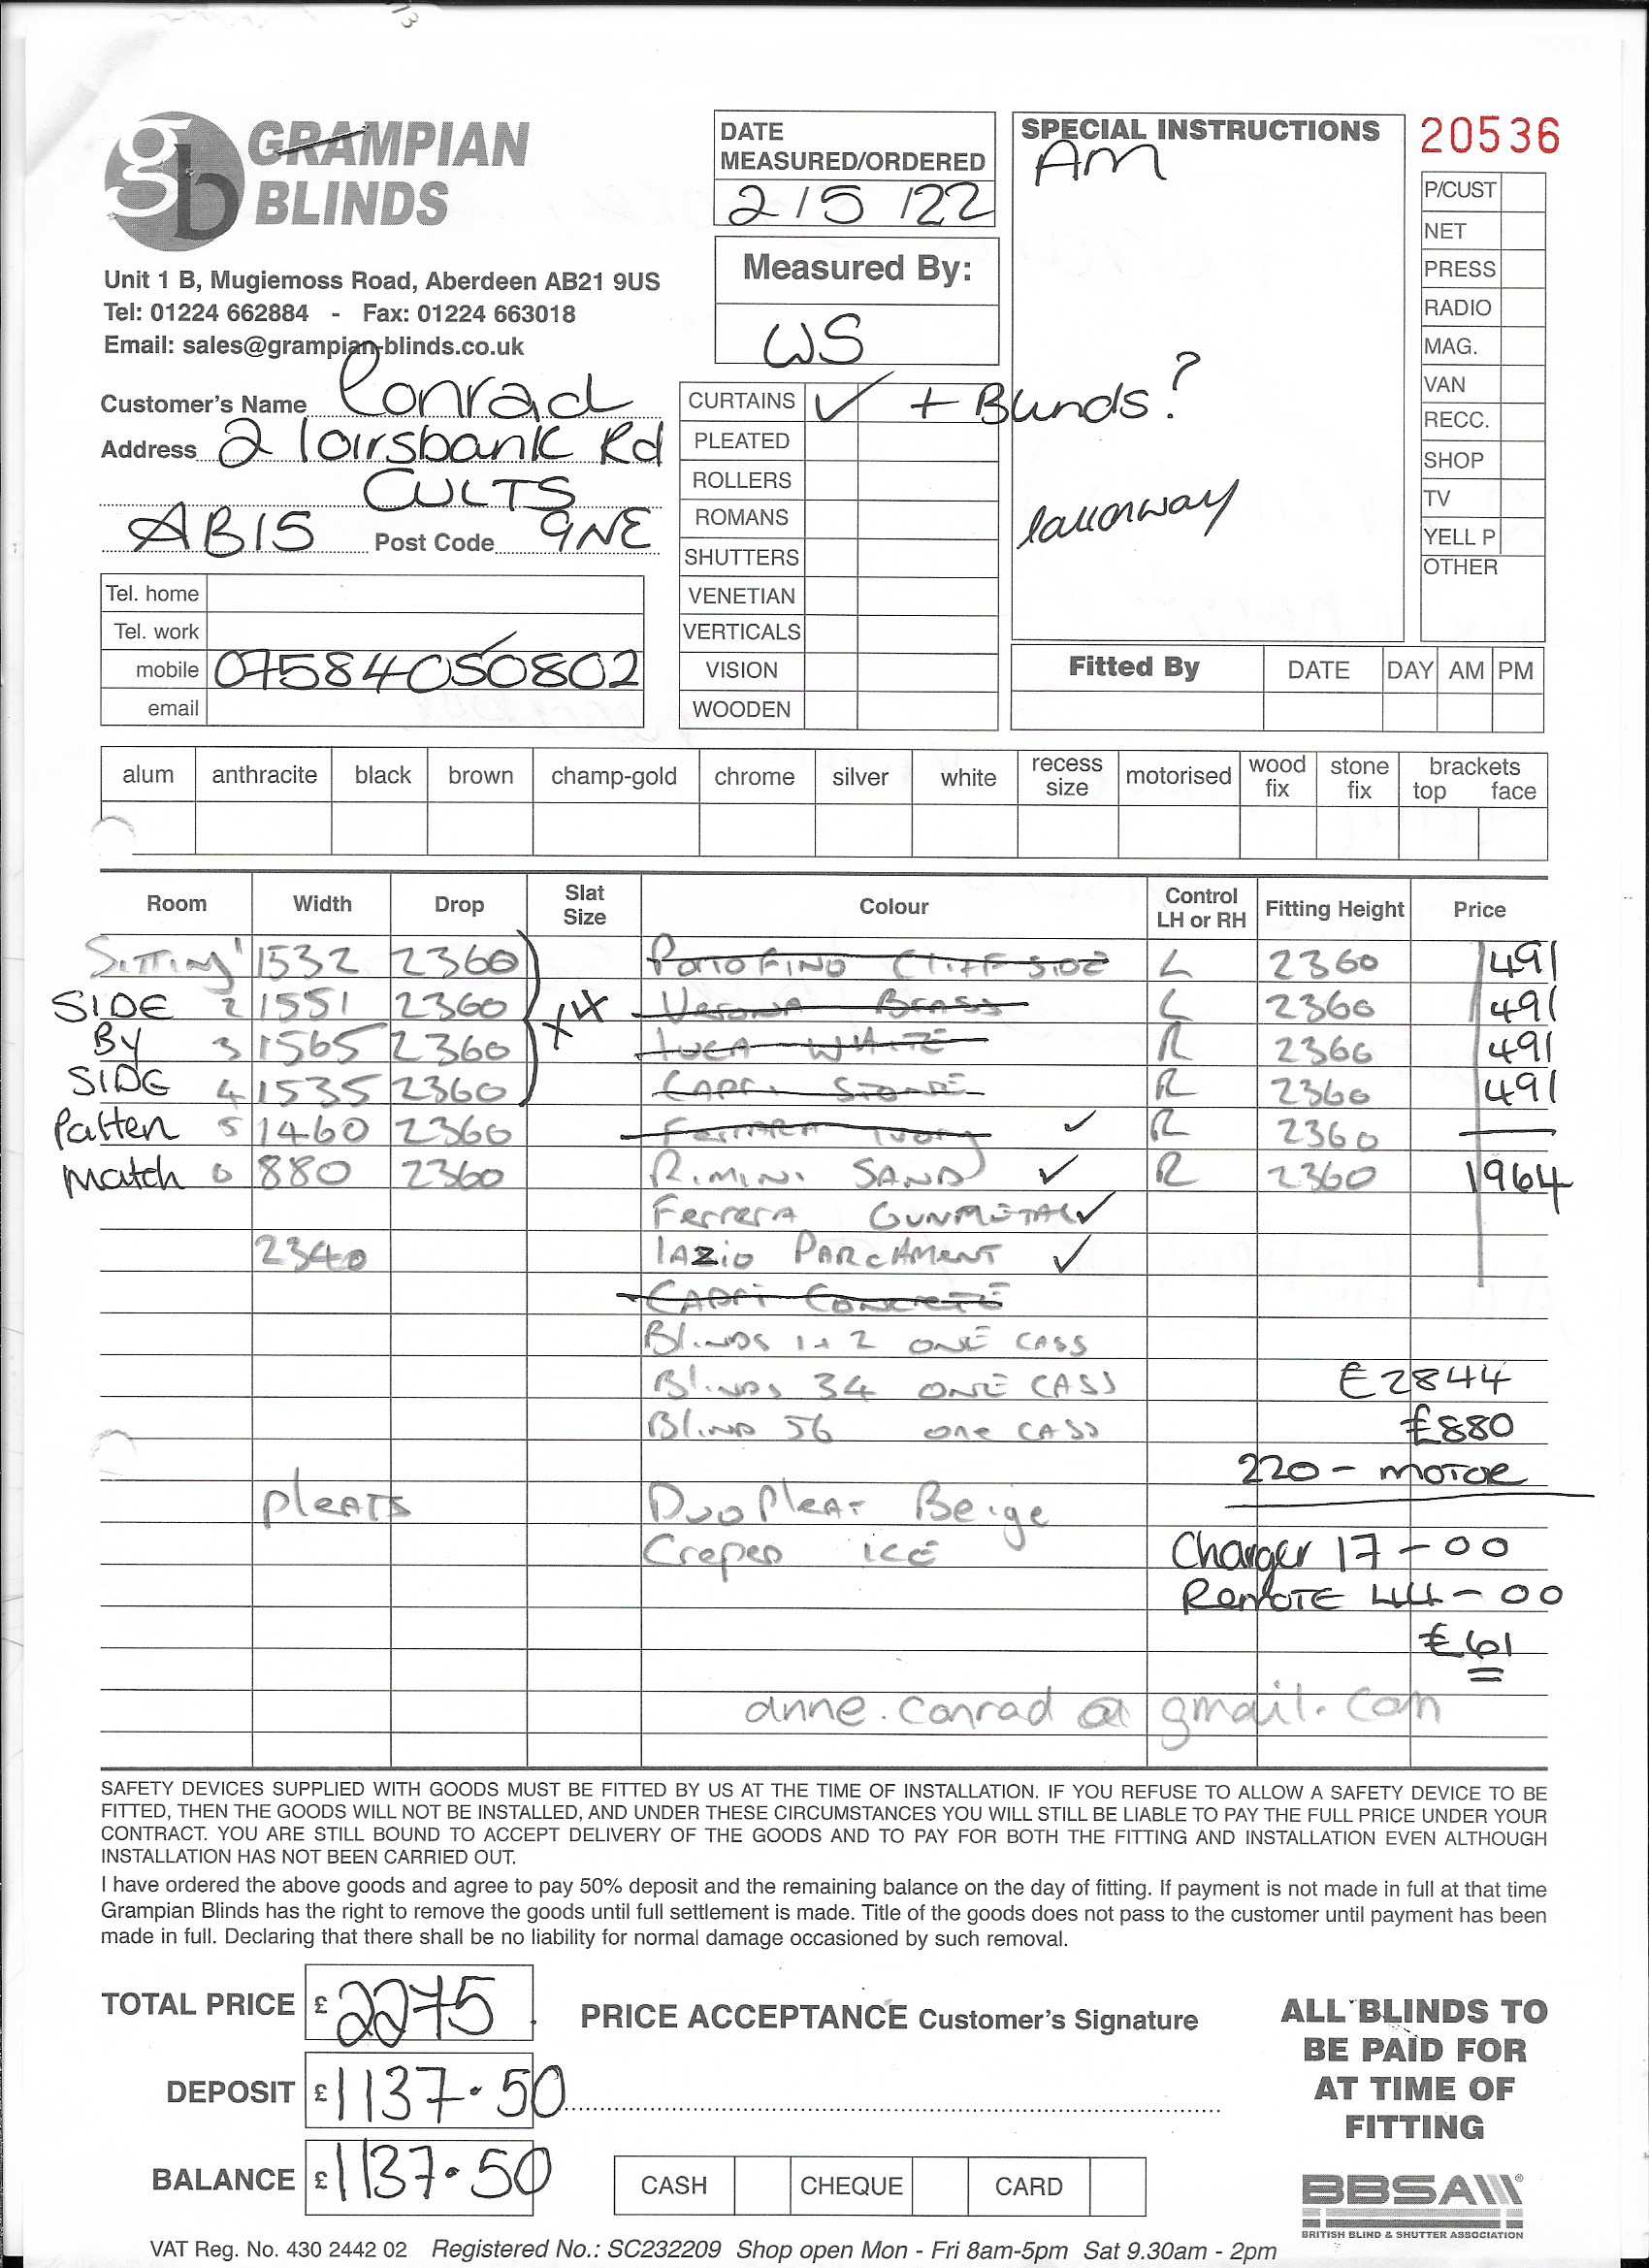 GRAMPIAN
BLINDS
Unit 1 B, Mugiemoss Road, Aberdeen AB21 9US
Tel: 01224 662884 - Fax: 01224 663018
Email: sales@grampian-blinds.co.uk
DATE
MEASURED/ORDERED
2/5/22
Measured By:
WS
SPECIAL INSTRUCTIONS
AM
20536
P/CUST
NET
PRESS
RADIO
MAG.
VAN
RECC.
SHOP
TV
YELL P
OTHER
Customer's Name Conrad
Address 2 loirsbank Rd
CULTS
AB15 Post Code 9NE
Tel. home
Tel. work
mobile 07584050802
email
CURTAINS ✓ + Blinds?
PLEATED
ROLLERS
ROMANS
SHUTTERS
VENETIAN
VERTICALS
VISION
WOODEN
Fitted By DATE DAY AM PM
alum anthracite black brown champ-gold chrome silver white recess size motorised wood fix stone fix brackets top face
Room Width Drop Slat Size Colour Control LH or RH Fitting Height Price
Sitting 1 1532 2360 Portofino Cliff Side L 2360 491
SIDE 2 1551 2360 Verona Brass L 2360 491
By 3 1565 2360 Luca White R 2360 491
SIDE 4 1535 2360 Capri Stone R 2360 491
Patten 5 1460 2360 Ferrara Ivory ✓ R 2360 —
Match 6 880 2360 Rimini SAND ✓ R 2360 1964
Ferrera GUNMETAL ✓
2340 lAzio PARCHMENT ✓
CAPRI CONCRETE
Blinds 1+2 ONE CASS
Blinds 34 ONE CASS £2844
Blind 56 one CASS £880
220 - MOTOR
pleats Duo Pleat Beige
Creped ICE Charger 17-00
Remote 44-00
£61
anne.conrad@gmail.com
SAFETY DEVICES SUPPLIED WITH GOODS MUST BE FITTED BY US AT THE TIME OF INSTALLATION. IF YOU REFUSE TO ALLOW A SAFETY DEVICE TO BE
FITTED, THEN THE GOODS WILL NOT BE INSTALLED, AND UNDER THESE CIRCUMSTANCES YOU WILL STILL BE LIABLE TO PAY THE FULL PRICE UNDER YOUR
CONTRACT. YOU ARE STILL BOUND TO ACCEPT DELIVERY OF THE GOODS AND TO PAY FOR BOTH THE FITTING AND INSTALLATION EVEN ALTHOUGH
INSTALLATION HAS NOT BEEN CARRIED OUT.
I have ordered the above goods and agree to pay 50% deposit and the remaining balance on the day of fitting. If payment is not made in full at that time
Grampian Blinds has the right to remove the goods until full settlement is made. Title of the goods does not pass to the customer until payment has been
made in full. Declaring that there shall be no liability for normal damage occasioned by such removal.
TOTAL PRICE £ 2275
PRICE ACCEPTANCE Customer's Signature
DEPOSIT £ 1137.50
BALANCE £ 1137.50
CASH CHEQUE CARD
ALL BLINDS TO
BE PAID FOR
AT TIME OF
FITTING
BBSA
BRITISH BLIND & SHUTTER ASSOCIATION
VAT Reg. No. 430 2442 02 Registered No.: SC232209 Shop open Mon - Fri 8am-5pm Sat 9.30am - 2pm